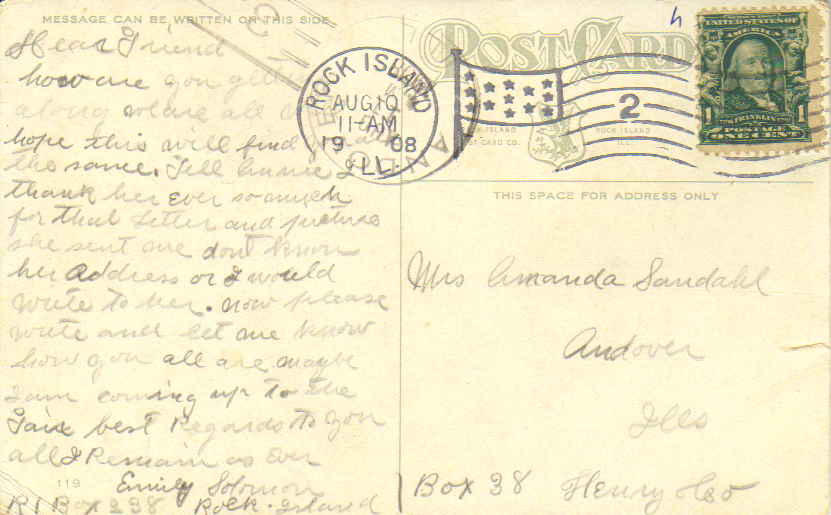 MESSAGE CAN BE WRITTEN ON THIS SIDE
Dear Friend
how are you getting
along we are all
hope this will find
the same. Tell Annie I
thank her ever so much
for that letter and picture
she sent me dont know
her Address or I would
write to her. now please
write and let me know
how you all are maybe
I am coming up to the
Fair best Regards to you
all I Remain as Ever
119
Emily Solomon
R I Box 238 Rock Island
POST CARD
ROCK ISLAND
AUG 10
11-AM
1908
ILL.
2
ROCK ISLAND
POST CARD CO.
ROCK ISLAND
ILL.
UNITED STATES OF
AMERICA
FRANKLIN
1 1
POSTAGE
ONE CENT
THIS SPACE FOR ADDRESS ONLY
Mrs Amanda Sandahl
Andover
Ills
Box 38 Henry Co